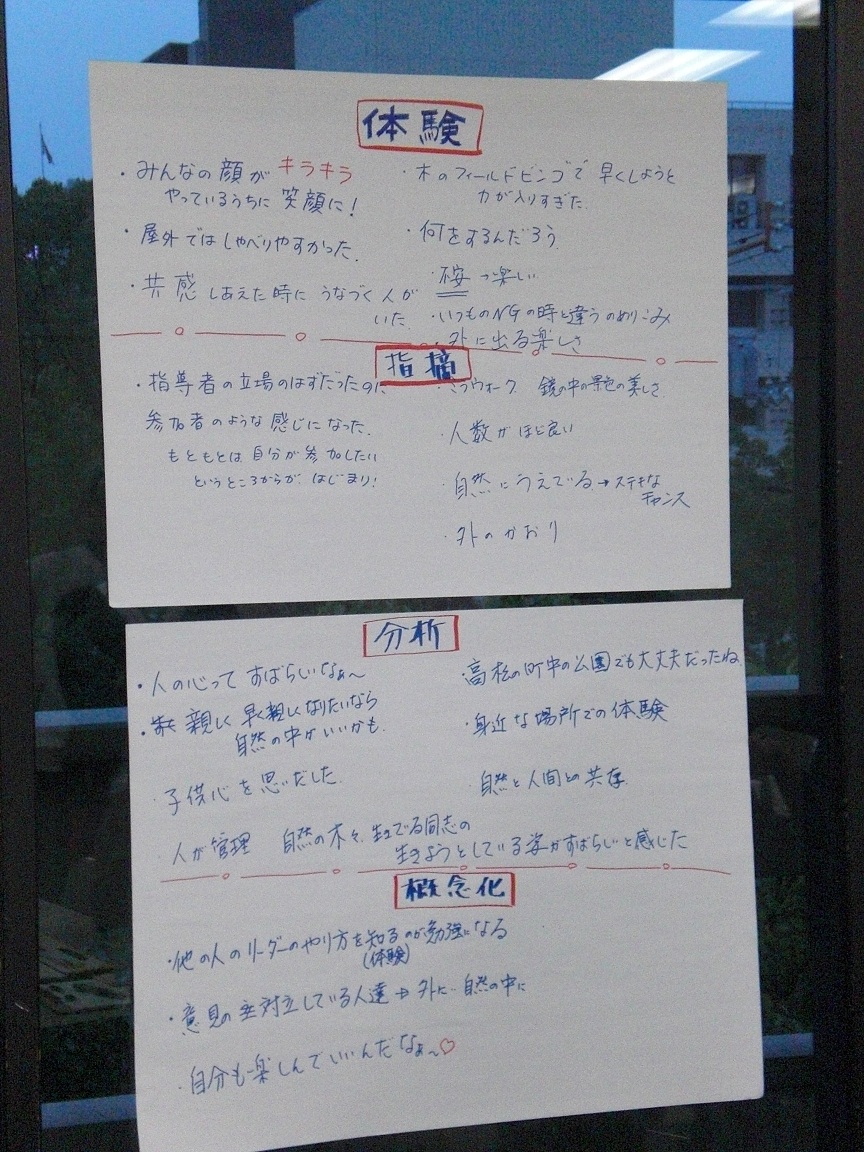 体験
・みんなの顔が キラキラ
やっているうちに 笑顔に!
・屋外では しゃべりやすかった.
・共感 しあえた時に うなづく 人が
いた.
・木のフィールドビンゴで 早くしようと
力が入りすぎた.
・何をするんだろう.
・不安→楽しい
・いつものNGの時と違うのめりこみ
・外に出る楽しさ
指摘
・指導者の立場のはずだったのに
参加者のような 感じになった.
もともとは 自分が 参加したい
というところからが、はじまり!
・ミラウォーク 鏡の中の景色の美しさ
・人数が ほど良い
・自然にうえている→ステキな
チャンス
・外のかおり
分析
・人の心って すばらいなぁ～
・親しく 早く親しくなりたいなら
自然の中がいいかも.
・子供心を思いだした.
・人が管理 自然の木々. 生きてる同志の
生きようとしている姿がすばらいと感じた
・高松の町中の公園でも大丈夫だったね.
・身近な場所での体験
自然と人間との共存.
概念化
・他の人のリーダーのやり方を知るのが勉強になる
(体験)
・意見の対立している人達→外に・自然の中に
・自分も楽しんでいいんだなぁ～♡